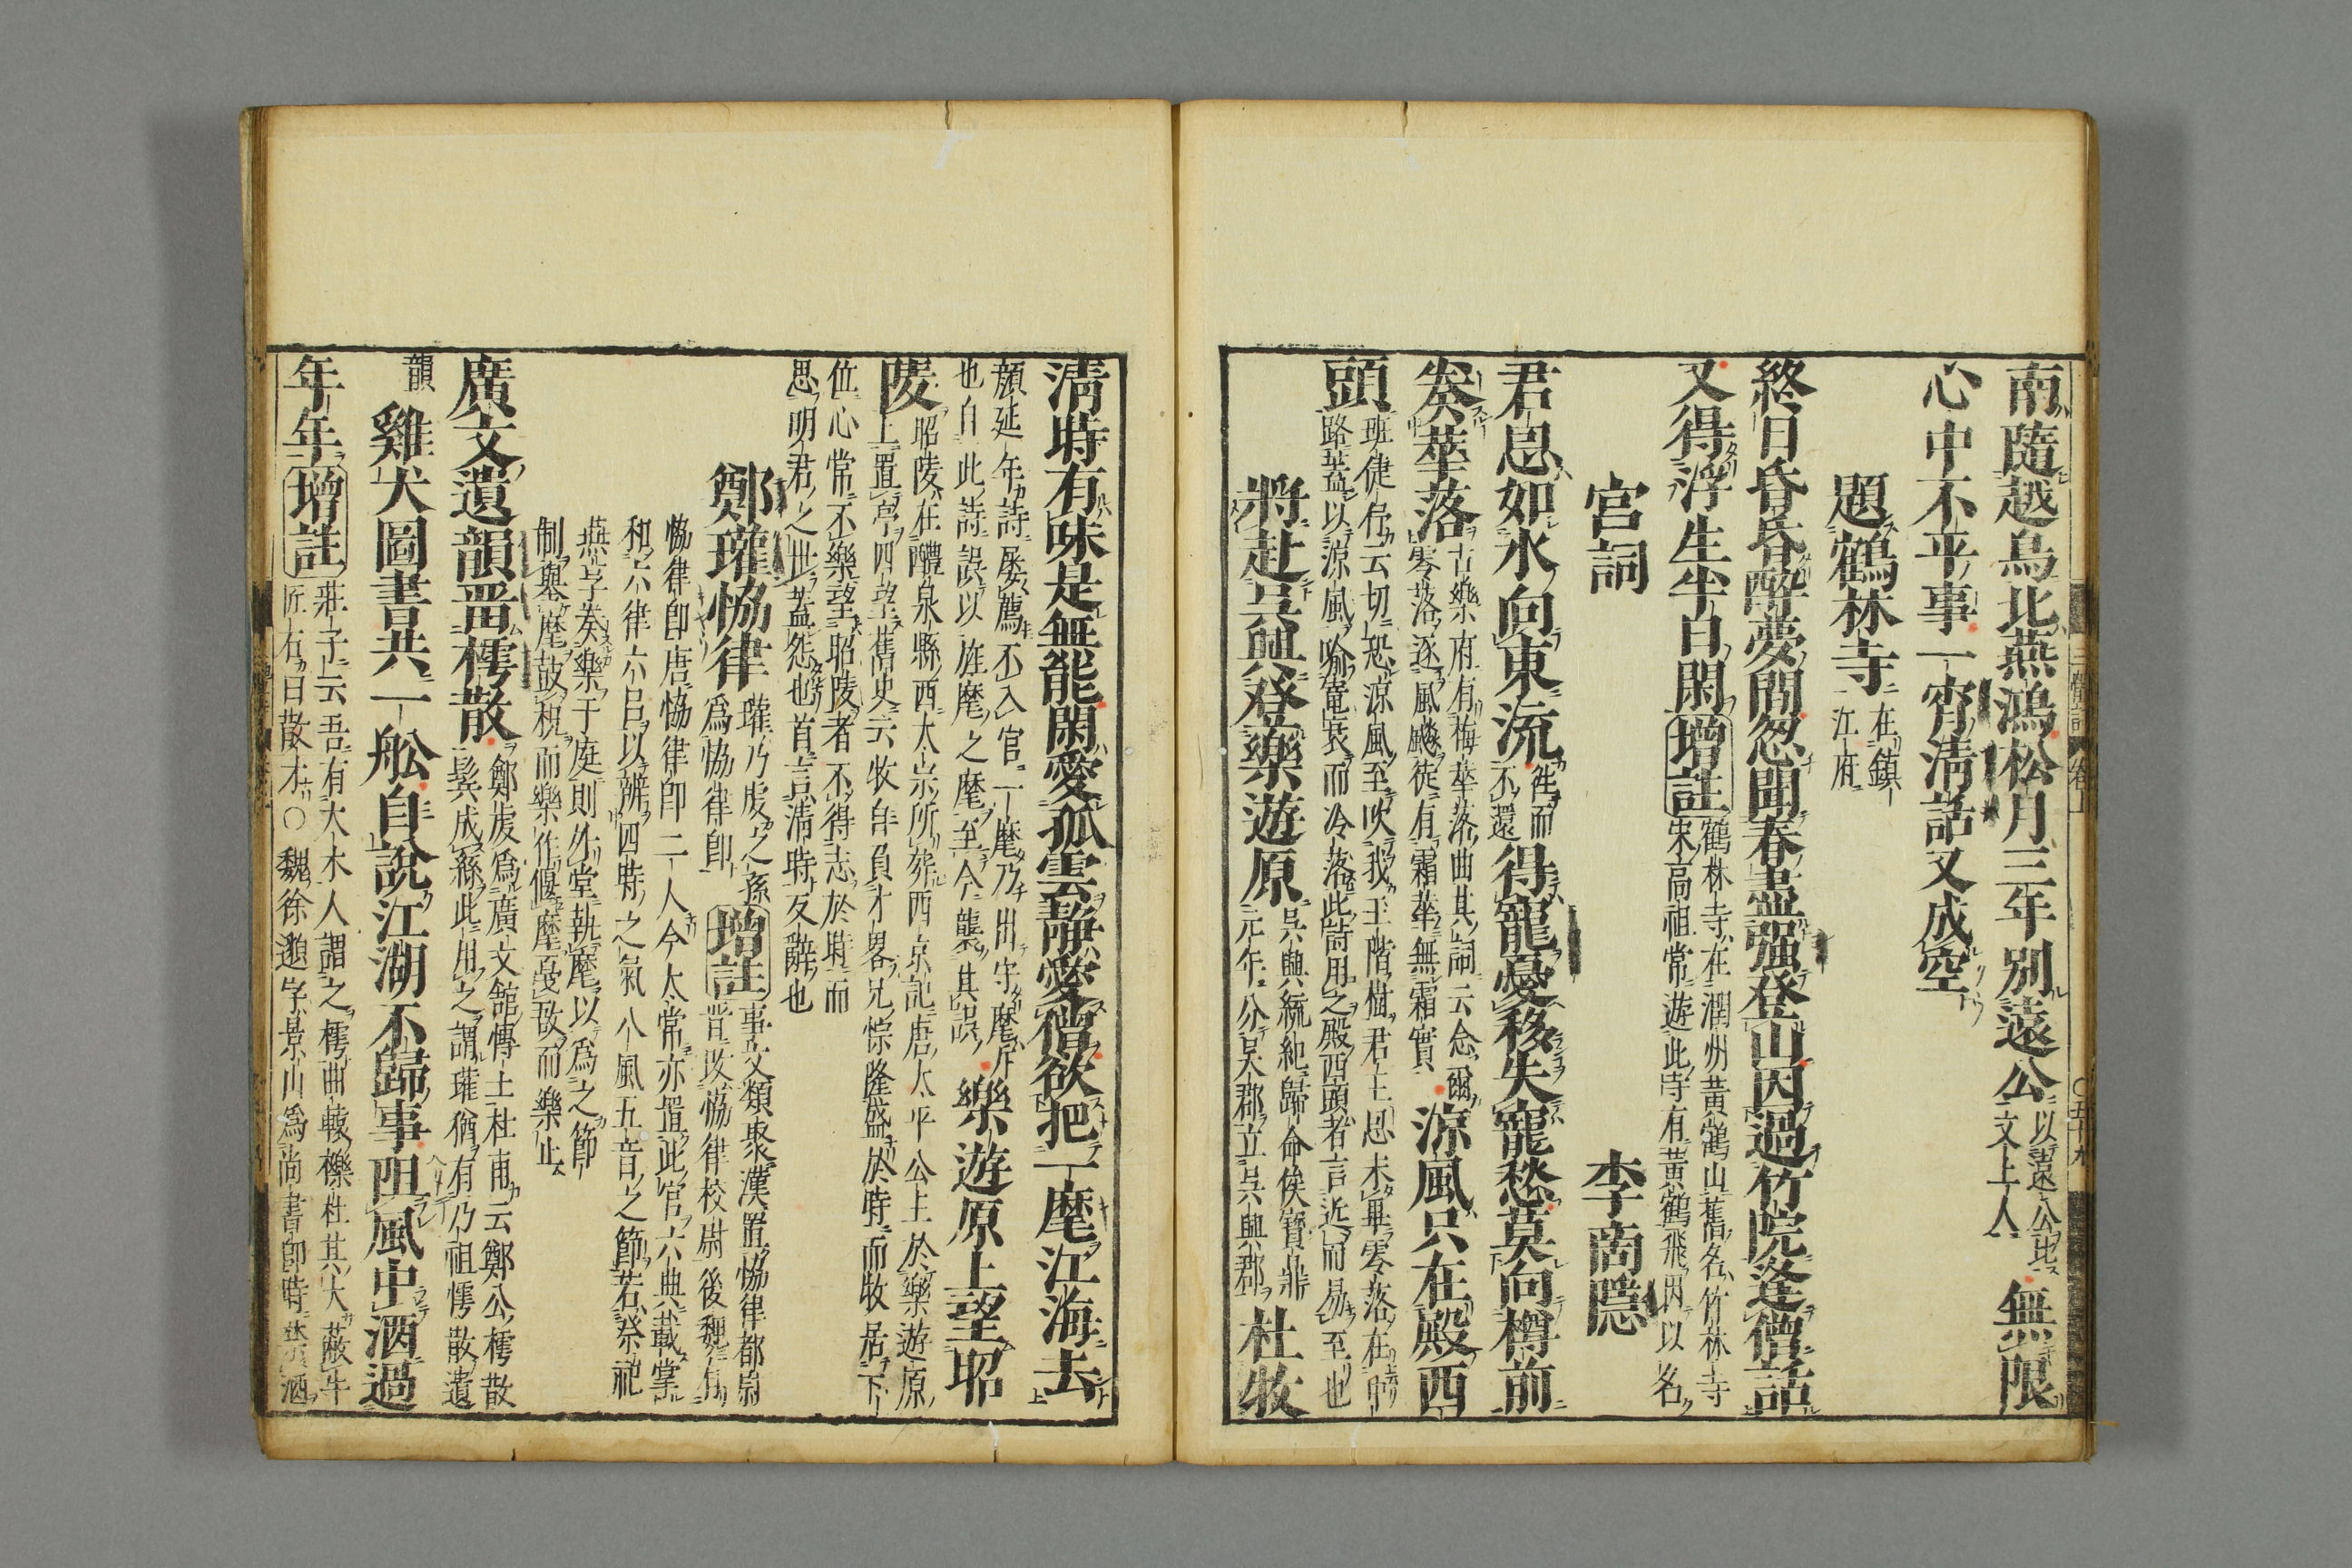 南隨越鳥北燕鴻松月三年別遠公以遠公比文上人無限
心中不平事一宵淸話又成空
題鶴林寺在鎮江府
終日昏昏醉夢間忽聞春盡强登山因過竹院逢僧話
又得浮生半日閑增註鶴林寺在潤州黃鶴山舊名竹林寺宋高祖常遊此寺有黃鶴飛因以名
宮詞 李商隱
君恩如水向東流徃而不還得寵憂移失寵愁莫向樽前
奏華落古樂府有梅華落曲其詞云念爾零落逐風飈徒有霜華無霜實凉風只在殿西
頭班倢伃云切恐凉風至吹我玉階樹君王恩未畢零落在中路葢以凉風喻寵衰而冷落此詩用之殿西頭者言近而易至也
將赴吳興登樂遊原吳興統紀歸命侯寶鼎元年分吳郡立吳興郡杜牧
淸時有味是無能閑愛孤雲靜愛僧欲把一麾江海去
顏延年詩屢薦不入官一麾乃出守麾斥也自此詩誤以旌麾之麾至今襲其誤樂遊原上望昭
陵昭陵在醴泉縣西太宗所葬西京記唐太平公主於樂遊原上置亭四望舊史云牧自負才畧兄悰隆盛於時而牧居下
位心常不樂望昭陵者不得志於時而思明君之世葢怨也首言淸時反辭也
鄭瓘恊律瓘乃虔之孫爲恊律郎增註事文類聚漢置恊律都尉晋改恊律校尉後魏有
恊律郎唐恊律郎二人今太常亦置此官六典載掌和六律六呂以辨四時之氣八風五音之節若祭祀
燕享奏樂于庭則升堂執麾以爲之節制舉麾鼓柷而樂作偃麾戞敔而樂止
廣文遺韻留樗散鄭虔爲廣文舘博士杜甫云鄭公樗散鬂成絲此用之謂瓘猶有乃祖樗散遺
韻雞犬圖書共一舩自說江湖不歸事阻風中酒過
年年增註莊子云吾有大木人謂之樗曲轅櫟社其大蔽牛匠石曰散木○魏徐邈字景山爲尚書郎時禁酒